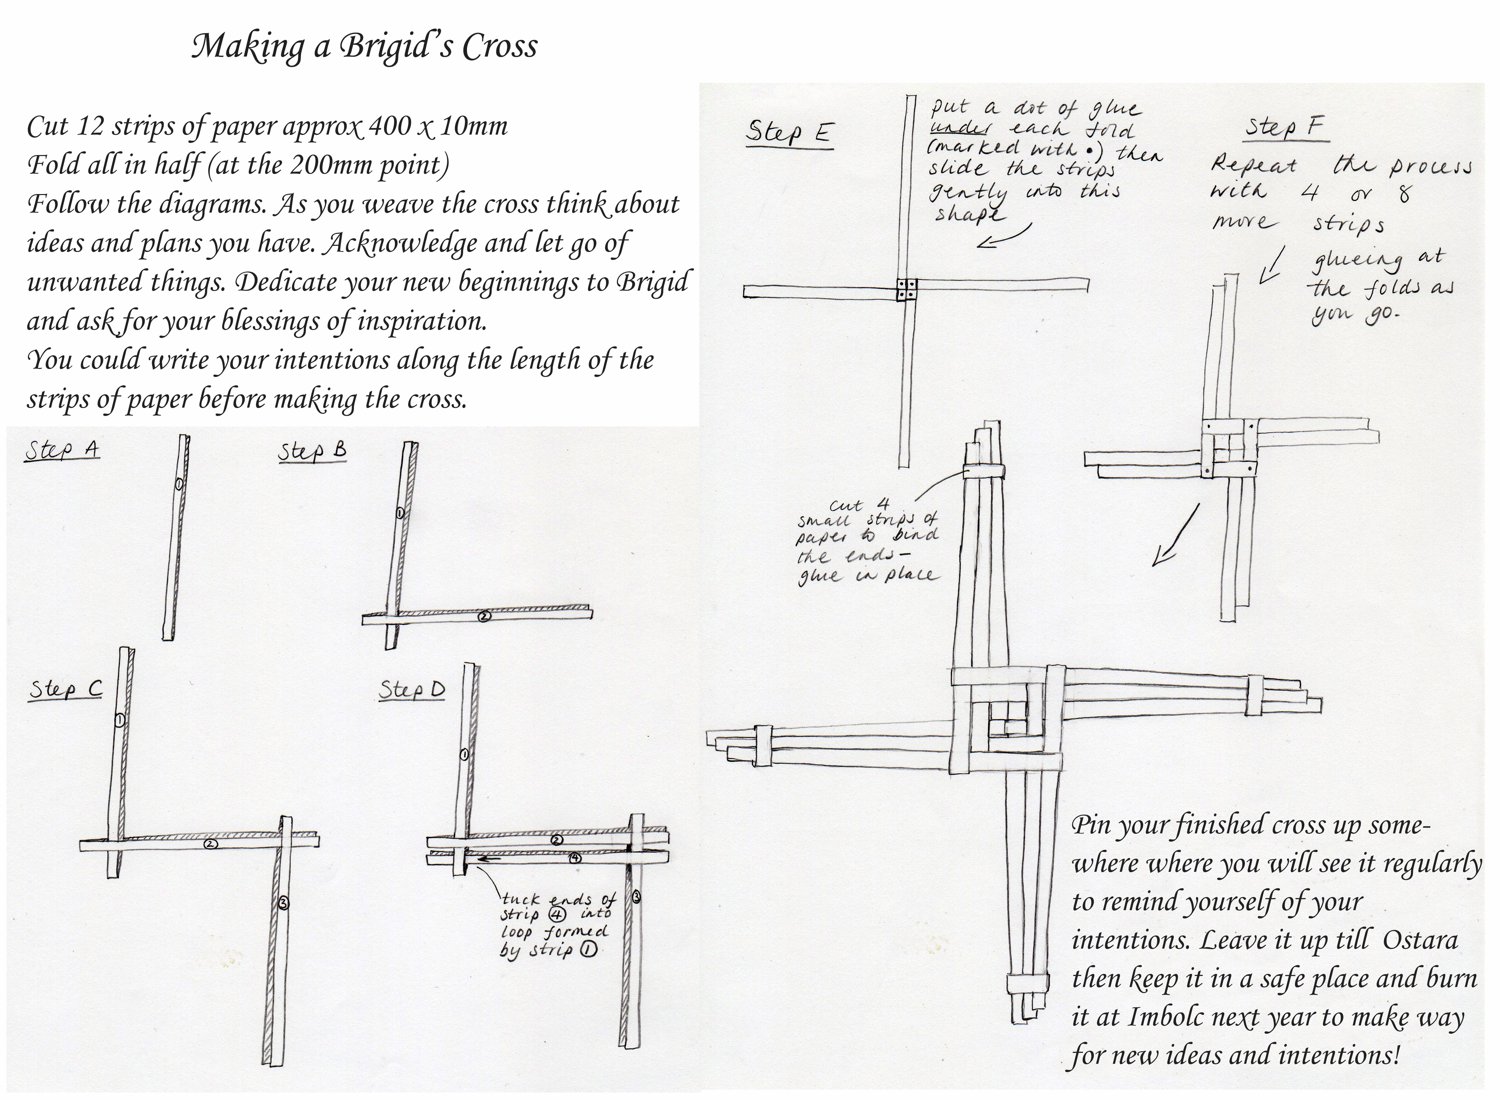 Making a Brigid's Cross
Cut 12 strips of paper approx 400 x 10mm
Fold all in half (at the 200mm point)
Follow the diagrams. As you weave the cross think about
ideas and plans you have. Acknowledge and let go of
unwanted things. Dedicate your new beginnings to Brigid
and ask for your blessings of inspiration.
You could write your intentions along the length of the
strips of paper before making the cross.
Step A
1
Step B
1
2
Step C
1
2
3
Step D
1
2
4
3
tuck ends of
strip ④ into
loop formed
by strip ①
Step E
put a dot of glue
under each fold
(marked with •) then
slide the strips
gently into this
shape
Step F
Repeat the process
with 4 or 8
more strips
glueing at
the folds as
you go.
cut 4
small strips of
paper to bind
the ends –
glue in place
Pin your finished cross up some-
where where you will see it regularly
to remind yourself of your
intentions. Leave it up till Ostara
then keep it in a safe place and burn
it at Imbolc next year to make way
for new ideas and intentions!